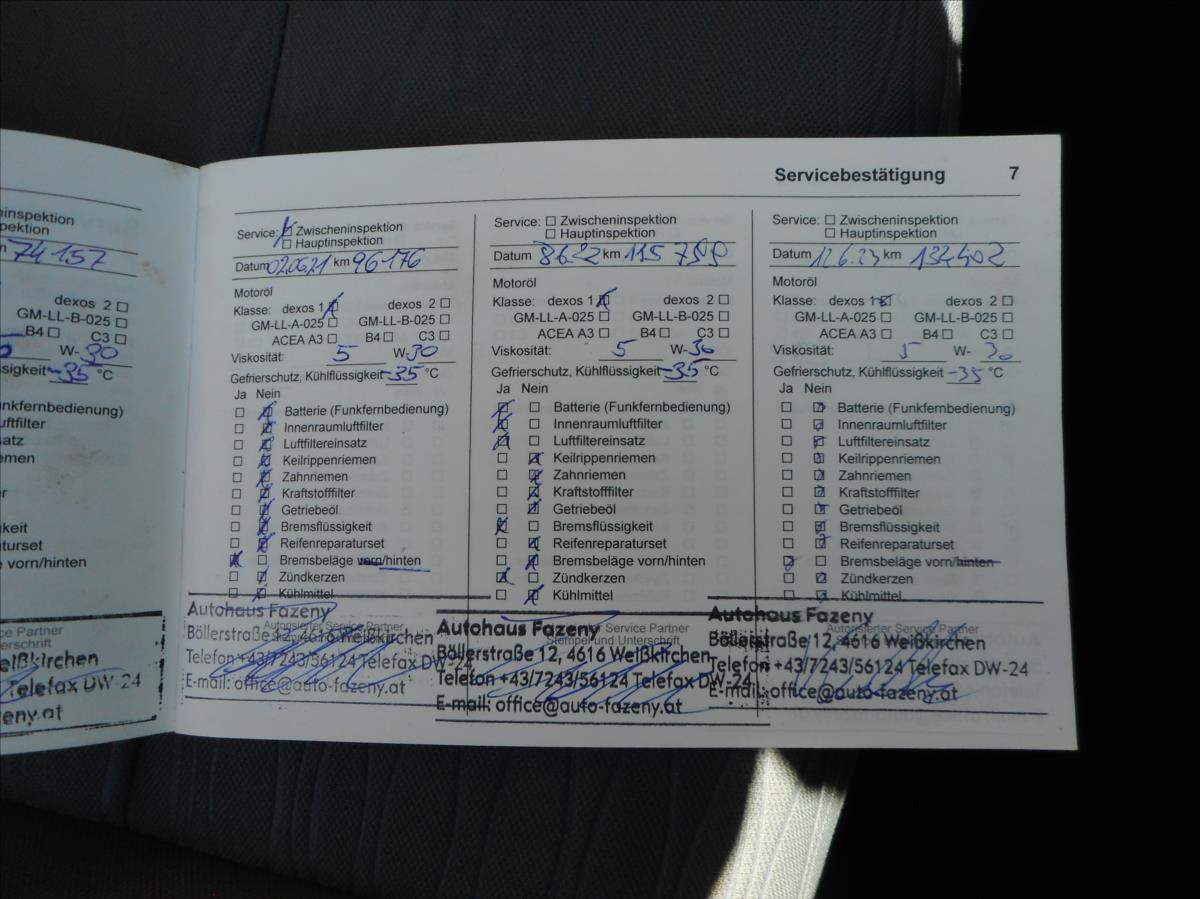 Servicebestätigung 7
inspektion
inspektion
74152
dexos 2 ☐
GM-LL-B-025 ☐
B4 ☐ C3 ☐
W-30
-35 °C
nkfernbedienung)
uftfilter
satz
emen
er
keit
aturset
e vorn/hinten
ce Partner
terschrift
eißkirchen
Telefax DW-24
zeny.at
Service: ☒ Zwischeninspektion
☐ Hauptinspektion
Datum 02.06.21 km 96176
Motoröl
Klasse: dexos 1 ☒ dexos 2 ☐
GM-LL-A-025 ☐ GM-LL-B-025 ☐
ACEA A3 ☐ B4 ☐ C3 ☐
Viskosität: 5 W-30
Gefrierschutz, Kühlflüssigkeit -35 °C
Ja Nein
☐ ☒ Batterie (Funkfernbedienung)
☐ ☒ Innenraumluftfilter
☐ ☒ Luftfiltereinsatz
☐ ☒ Keilrippenriemen
☐ ☒ Zahnriemen
☐ ☒ Kraftstofffilter
☐ ☒ Getriebeöl
☐ ☒ Bremsflüssigkeit
☐ ☒ Reifenreparaturset
☒ ☐ Bremsbeläge vorn/hinten
☐ ☒ Zündkerzen
☐ ☒ Kühlmittel
Autorisierter Service Partner
Autohaus Fazeny
Böllerstraße 12, 4616 Weißkirchen
Telefon +43/7243/56124 Telefax DW-24
E-mail: office@auto-fazeny.at
Service: ☐ Zwischeninspektion
☐ Hauptinspektion
Datum 8.6.22 km 115799
Motoröl
Klasse: dexos 1 ☒ dexos 2 ☐
GM-LL-A-025 ☐ GM-LL-B-025 ☐
ACEA A3 ☐ B4 ☐ C3 ☐
Viskosität: 5 W-30
Gefrierschutz, Kühlflüssigkeit -35 °C
Ja Nein
☒ ☐ Batterie (Funkfernbedienung)
☒ ☐ Innenraumluftfilter
☒ ☐ Luftfiltereinsatz
☐ ☒ Keilrippenriemen
☐ ☒ Zahnriemen
☐ ☒ Kraftstofffilter
☐ ☒ Getriebeöl
☒ ☐ Bremsflüssigkeit
☐ ☐ Reifenreparaturset
☐ ☒ Bremsbeläge vorn/hinten
☒ ☐ Zündkerzen
☐ ☒ Kühlmittel
Service Partner
Stempel und Unterschrift
Autohaus Fazeny
Böllerstraße 12, 4616 Weißkirchen
Telefon +43/7243/56124 Telefax DW-24
E-mail: office@auto-fazeny.at
Service: ☐ Zwischeninspektion
☐ Hauptinspektion
Datum 12.6.23 km 132402
Motoröl
Klasse: dexos 1 ☒ dexos 2 ☐
GM-LL-A-025 ☐ GM-LL-B-025 ☐
ACEA A3 ☐ B4 ☐ C3 ☐
Viskosität: 5 W-30
Gefrierschutz, Kühlflüssigkeit -35 °C
Ja Nein
☐ ☒ Batterie (Funkfernbedienung)
☐ ☒ Innenraumluftfilter
☐ ☒ Luftfiltereinsatz
☐ ☒ Keilrippenriemen
☐ ☒ Zahnriemen
☐ ☒ Kraftstofffilter
☐ ☒ Getriebeöl
☐ ☒ Bremsflüssigkeit
☐ ☒ Reifenreparaturset
☒ ☐ Bremsbeläge vorn/hinten
☐ ☒ Zündkerzen
☐ ☒ Kühlmittel
Autorisierter Service Partner
Autohaus Fazeny
Böllerstraße 12, 4616 Weißkirchen
Telefon +43/7243/56124 Telefax DW-24
E-mail: office@auto-fazeny.at